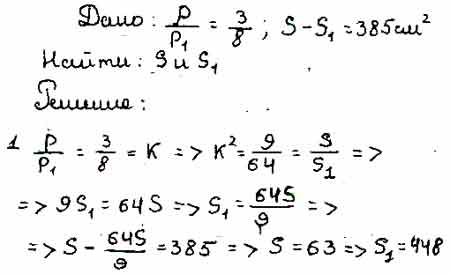 Дано: P/P₁ = 3/8; S-S₁=385см²
Найти: S и S₁.
Решение:
1 P/P₁ = 3/8 = K => K² = 9/64 = S/S₁ =>
=> 9S₁ = 64S => S₁ = 64S/9 =>
=> S - 64S/9 = 385 => S = 63 => S₁ = 448